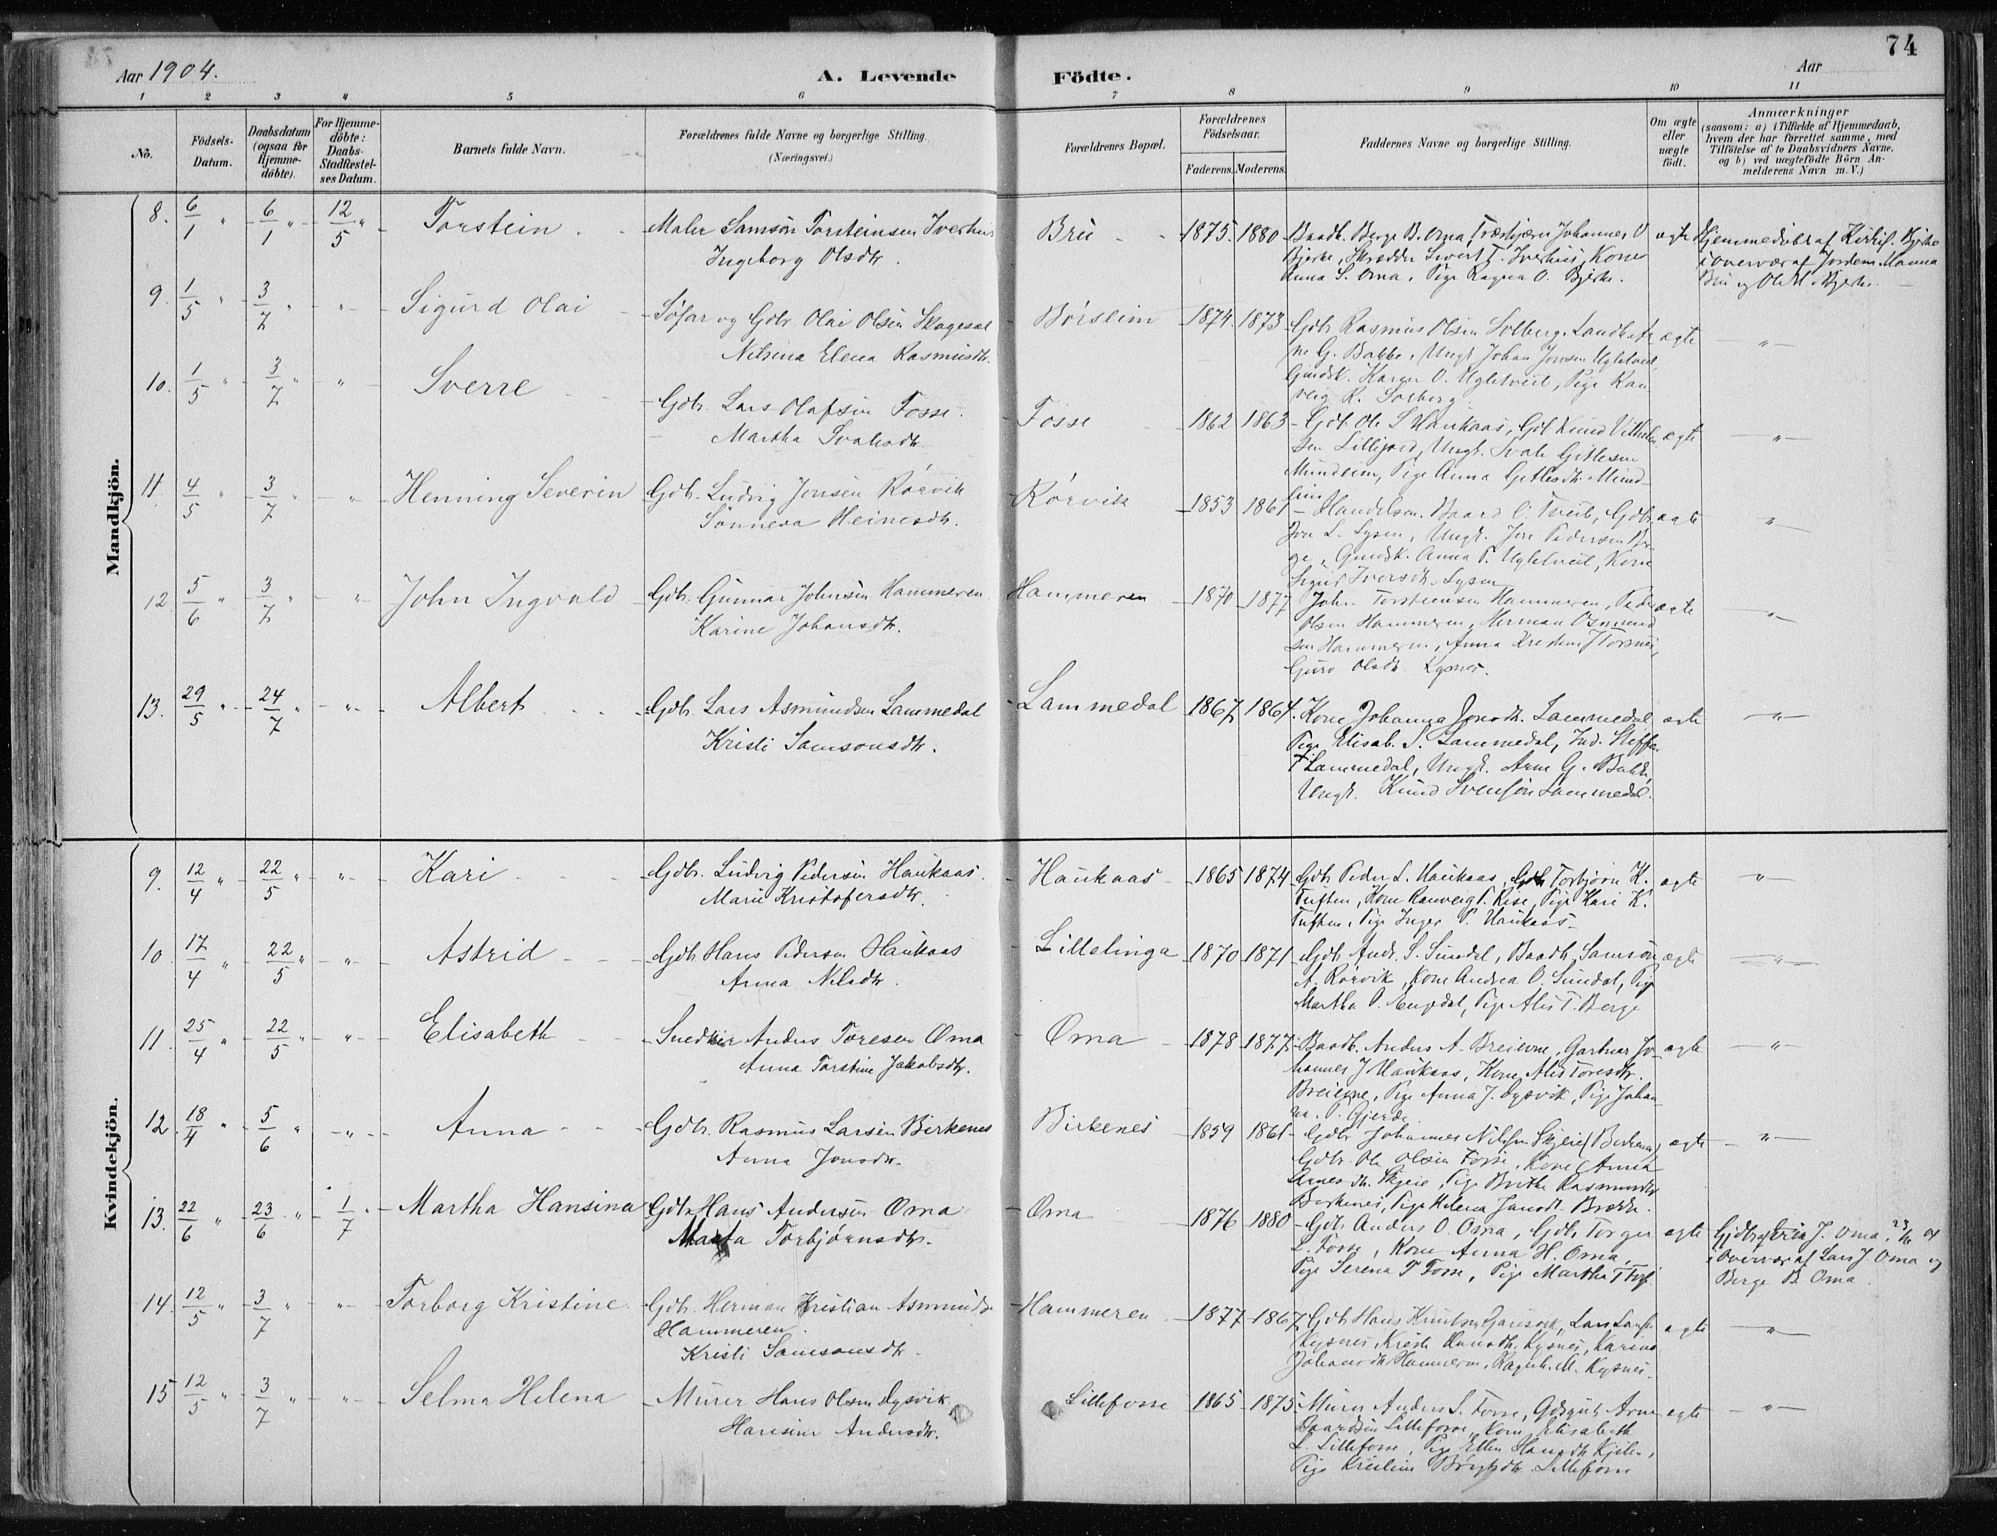 74
Aar 1904.
A. Levende Födte.
Aar
1 2 3 4 5 6 7 8 9 10 11
No.
Födsels-Datum.
Daabsdatum (ogsaa for Hjemme-döbte).
For Hjemme-döbte: Daabs-Stadfæstel-ses Datum.
Barnets fulde Navn.
Forældrenes fulde Navne og borgerlige Stilling.
(Næringsvei.)
Forældrenes Bopæl.
Forældrenes Födselsaar.
Faderens. Moderens.
Faddernes Navne og borgerlige Stilling.
Om ægte eller uægte födt.
Anmærkninger
(saasom: a) i Tilfælde af Hjemmedaab,
hvem der har forrettet samme, med
Tilföielse af to Daabsvidners Navne.
og b) ved uægtefödte Börn An-
melderens Navn m. V.)
Mandkjön.
8. 6/1 " 6/1 " 12/5 " Torstein
Maler Samson Torsteinsen
Ingeborg Olsdtr.
Bru 1875 1880
Baadb. Berge B. Oma, Johannes O
Bjerke, Skrædder Sivert T. Kone
Anna S. Oma, Pige Ragna O. Bjerke.
ægte
Hjemmedøbt af Kirkes. Bjerke
i overvær af Jordem. Manna
Bru og Ole M. Bjerke.
9. 1/5 " 3/7 " " Sigurd Olai
og Gdbr. Olai Olsen
Nilsina Elena Rasmusdtr.
Børsheim 1874 1873
Gdb. Rasmus Olsen Solberg, Landb. Ar
ne G. Bakke, Ungk. Johan Jonsen Ugletveit,
Gmdsk. Karger O. Ugletveit, Pige Ran
veig R. Solberg.
ægte "
10. 1/5 " 3/7 " " Sverre
Gdbr. Lars Olafsen Fosse.
Martha
Fosse 1862 1863
Gdb. Ole S Haukaas, Gdb Knud Vilhelm
sen Ungk. Gitlesen
Mundheim, Pige Anna Gitlesdtr. Mund
heim
ægte "
11. 4/5 " 3/7 " " Henning Severin
Gdb. Ludvig Jonsen Rørvik
Sønneva Heinesdtr.
Rørvik 1853 1861
Handelsm. Baard O. Tveit, Gdbr.
Jon L. Lysen, Ungk. Jon Pedersen Ber
ge, Gmdsk. Anna P. Ugletveit, Kone
Sigrid Iversdtr. Lysen
ægte "
12. 5/6 " 3/7 " " John Ingvald
Gdb. Gunnar Johnsen Hammeren
Karine Johansdtr.
Hammeren 1870 1877
John Torsteinsen Hammeren, Peder
Olsen Hammeren, Herman Osmund
sen Hammeren, Anna
Guro Olsdtr. Kysnes.
ægte "
13. 29/5 " 24/7 " " Albert
Gdb. Lars Asmundsen Lammedal
Kristi Samsonsdtr.
Lammedal 1867 1864
Kone Johanna Jonsdtr. Lammedal
Pige Elisab. S. Lammedal, Ind. Steffen
T Lammedal, Ungk. Arne G. Bakke,
Ungk. Knud Svensøn Lammedal.
ægte "
Kvindekjön.
9. 12/4 " 22/5 " " Kari
Gdbr. Ludvig Pedersen Haukaas.
Marie Kristofersdtr.
Haukaas 1865 1874
Gdb. Peder L. Haukaas, Gdb. Torbjørn K.
Tuften, Kone Ranveig P. Rise, Pige Kari K.
Tuften, Pige Inger P. Haukaas
ægte "
10. 17/4 " 22/5 " " Astrid
Gdb. Hans Pedersen Haukaas
Anna Nilsdtr.
Lillelinga 1870 1871
Gdb. Andr. S. Sundal, Baadb. Samson
A. Rørvik, Kone Andrea O. Sundal, Pige
Martha O. Pige Alis T. Berge
ægte "
11. 25/4 " 22/5 " " Elisabeth
Snedker Anders Toresen Oma
Anna Torstine Jakobsdtr.
Oma 1878 1877
Baadb. Anders A. Breierne, Gartner Jo
hannes J Haukaas, Kone Alis Toresdtr.
Breierne, Pige Anna J. Dysvik, Pige Johan
na P. Gjerde
ægte "
12. 18/4 " 5/6 " " Anna
Gdb. Rasmus Larsen Birkenes
Anna Jonsdtr.
Birkenes 1859 1861
Gdbr. Johannes Nilsen Skjeie (Birkenes)
Gdbr. Ole Olsen Fosse, Kone Anna
Arnesdtr. Skjeie, Pige Brithe Rasmusdtr.
Birkenes, Pige Helena Jansdtr.
ægte "
13. 22/6 " 23/6 " 1/7 " Martha Hansina
Gdb. Hans Andersen Oma
Marta Torbjørnsdtr.
Oma 1876 1880
Gdb. Anders O. Oma, Gdb. Torger
L. Fosse, Kone Anna H. Oma,
Pige Serena T Fosse, Pige Martha T
ægte
J. Oma, 23/6 04
i Overvær af Lars J. Oma og
Berge B. Oma.
14. 12/5 " 3/7 " " Torborg Kristine
Gdb. Herman Kristian Asmunds.
Hammeren.
Kristi Samsonsdtr.
Hammeren 1877 1867
Gdb. Hans Knutsen Lars
Kysnes, Kristi Hansdtr. Kysnes, Karina
Johansdtr. Hammeren, M. Kysnes.
ægte "
15 12/5 " 3/7 " " Selma Helena
Murer Hans Olsen Dysvik
Hansine Andersdtr.
Lillefosse 1865 1875
Murer Anders S. Fosse, Gdsgut Arne
Baardsen Lillefosse, Kone Elisabeth
L. Lillefosse, Pige Ellen Hansdtr. Kjelen,
Pige Lillefosse
ægte "